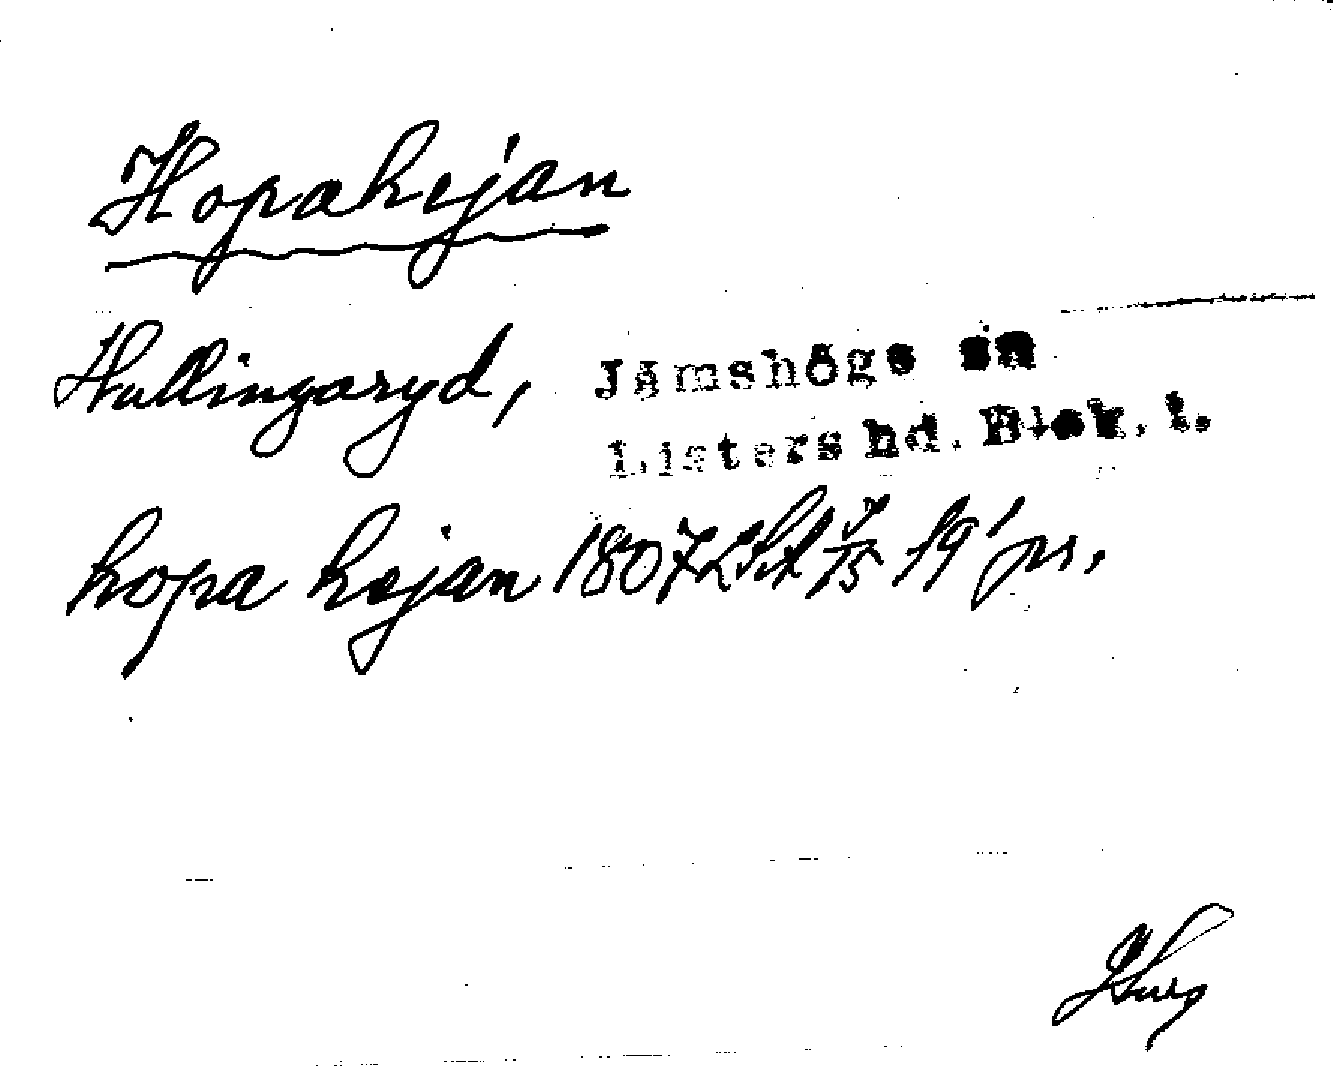 Hopahejan
Hullingaryd, Jämshögs sn
Listers hd. Blek. l.
hopa hejan 1807 LSA 7/15 19' js.